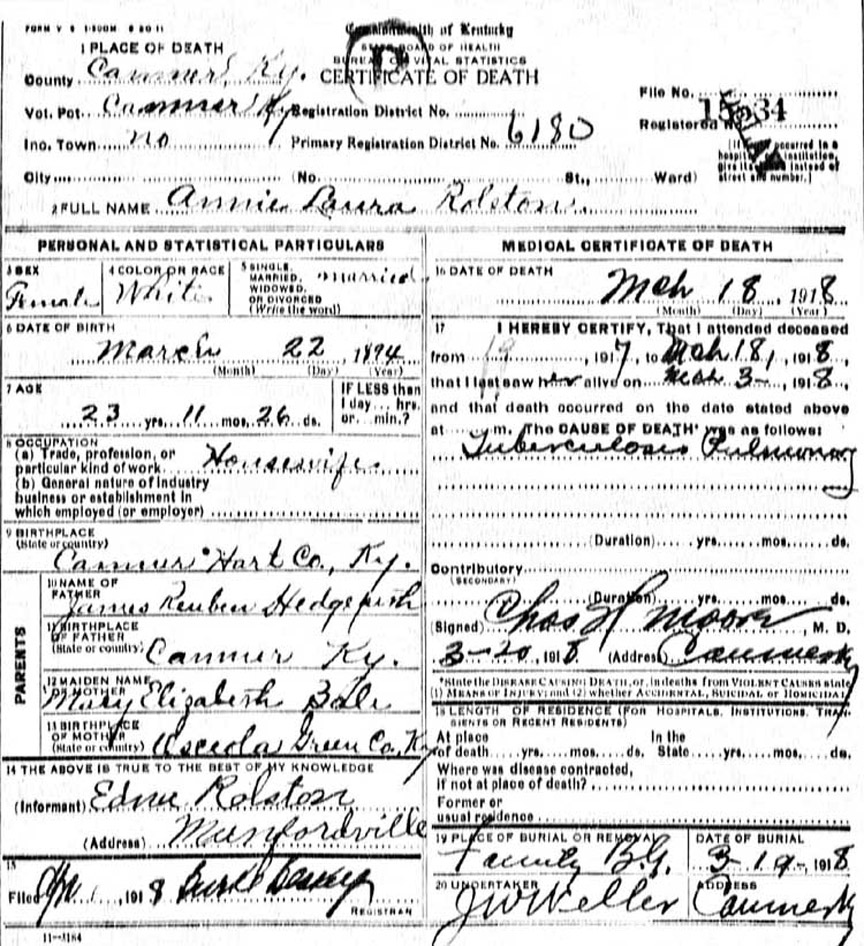 Commonwealth of Kentucky
STATE BOARD OF HEALTH
BUREAU OF VITAL STATISTICS
CERTIFICATE OF DEATH
1 PLACE OF DEATH
County Canmer, Ky.
Vot. Pct. Canmer Ky Registration District No.
Inc. Town no Primary Registration District No. 6180
File No. 15534
Registered No.
[If death occurred in a hospital or institution, give its NAME instead of street and number.]
City (No. St., Ward)
2 FULL NAME Annie Laura Rolston.
PERSONAL AND STATISTICAL PARTICULARS
3 SEX Female
4 COLOR OR RACE White
5 SINGLE, MARRIED, WIDOWED, OR DIVORCED (Write the word) married.
6 DATE OF BIRTH
March 22, 1894
(Month) (Day) (Year)
7 AGE
23 yrs. 11 mos. 26 ds.
IF LESS than 1 day... hrs. or... min.?
8 OCCUPATION
(a) Trade, profession, or particular kind of work Housewife
(b) General nature of industry
business or establishment in
which employed (or employer)
9 BIRTHPLACE
(State or country)
Canmer Hart Co., Ky.
PARENTS
10 NAME OF FATHER
James Reuben Hedgepeth
11 BIRTHPLACE OF FATHER
(State or country) Canmer Ky.
12 MAIDEN NAME OF MOTHER
Mary Elizabeth Bale
13 BIRTHPLACE OF MOTHER
(State or country) Osceola Green Co, Ky
14 THE ABOVE IS TRUE TO THE BEST OF MY KNOWLEDGE
(Informant) Rolston
(Address) Munfordville
15
Filed 1918
REGISTRAR
11-3184
MEDICAL CERTIFICATE OF DEATH
16 DATE OF DEATH
Mch 18, 1918
(Month) (Day) (Year)
17 I HEREBY CERTIFY, That I attended deceased
from 1917, to Mch 18, 1918,
that I last saw her alive on Mch 3-, 1918,
and that death occurred on the date stated above
at m. The CAUSE OF DEATH* was as follows:
Tuberculosis Pulmonary
(Duration) yrs. mos. ds.
Contributory
(SECONDARY)
(Duration) yrs. mos. ds.
(Signed) Chas H Moore, M. D.
3-20, 1918 (Address) Canmer Ky
*State the DISEASE CAUSING DEATH, or, in deaths from VIOLENT CAUSES state
(1) MEANS OF INJURY; and (2) whether ACCIDENTAL, SUICIDAL or HOMICIDAL
18 LENGTH OF RESIDENCE (FOR HOSPITALS, INSTITUTIONS, TRANSIENTS OR RECENT RESIDENTS)
At place of death yrs. mos. ds. In the State yrs. mos. ds.
Where was disease contracted,
if not at place of death?
Former or
usual residence
19 PLACE OF BURIAL OR REMOVAL
Family B.G.
DATE OF BURIAL
3-19-, 1918
20 UNDERTAKER
J W Weller
ADDRESS
Canmer Ky